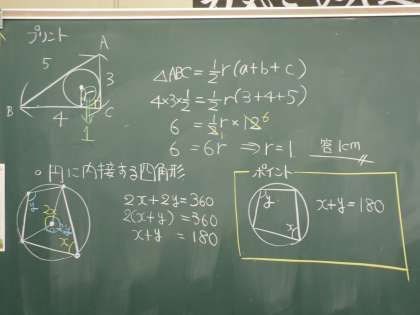 プリント
A
5
3
B
4
C
1
△ABC = 1/2 r (a+b+c)
4×3×1/2 = 1/2 r (3+4+5)
6 = 1/2 r × 12 6
6 = 6r ⇒ r=1 答 1cm
○円に内接する四角形
y
2x
2y
x
2x+2y=360
2(x+y)=360
x+y =180
ポイント
y
x
x+y=180